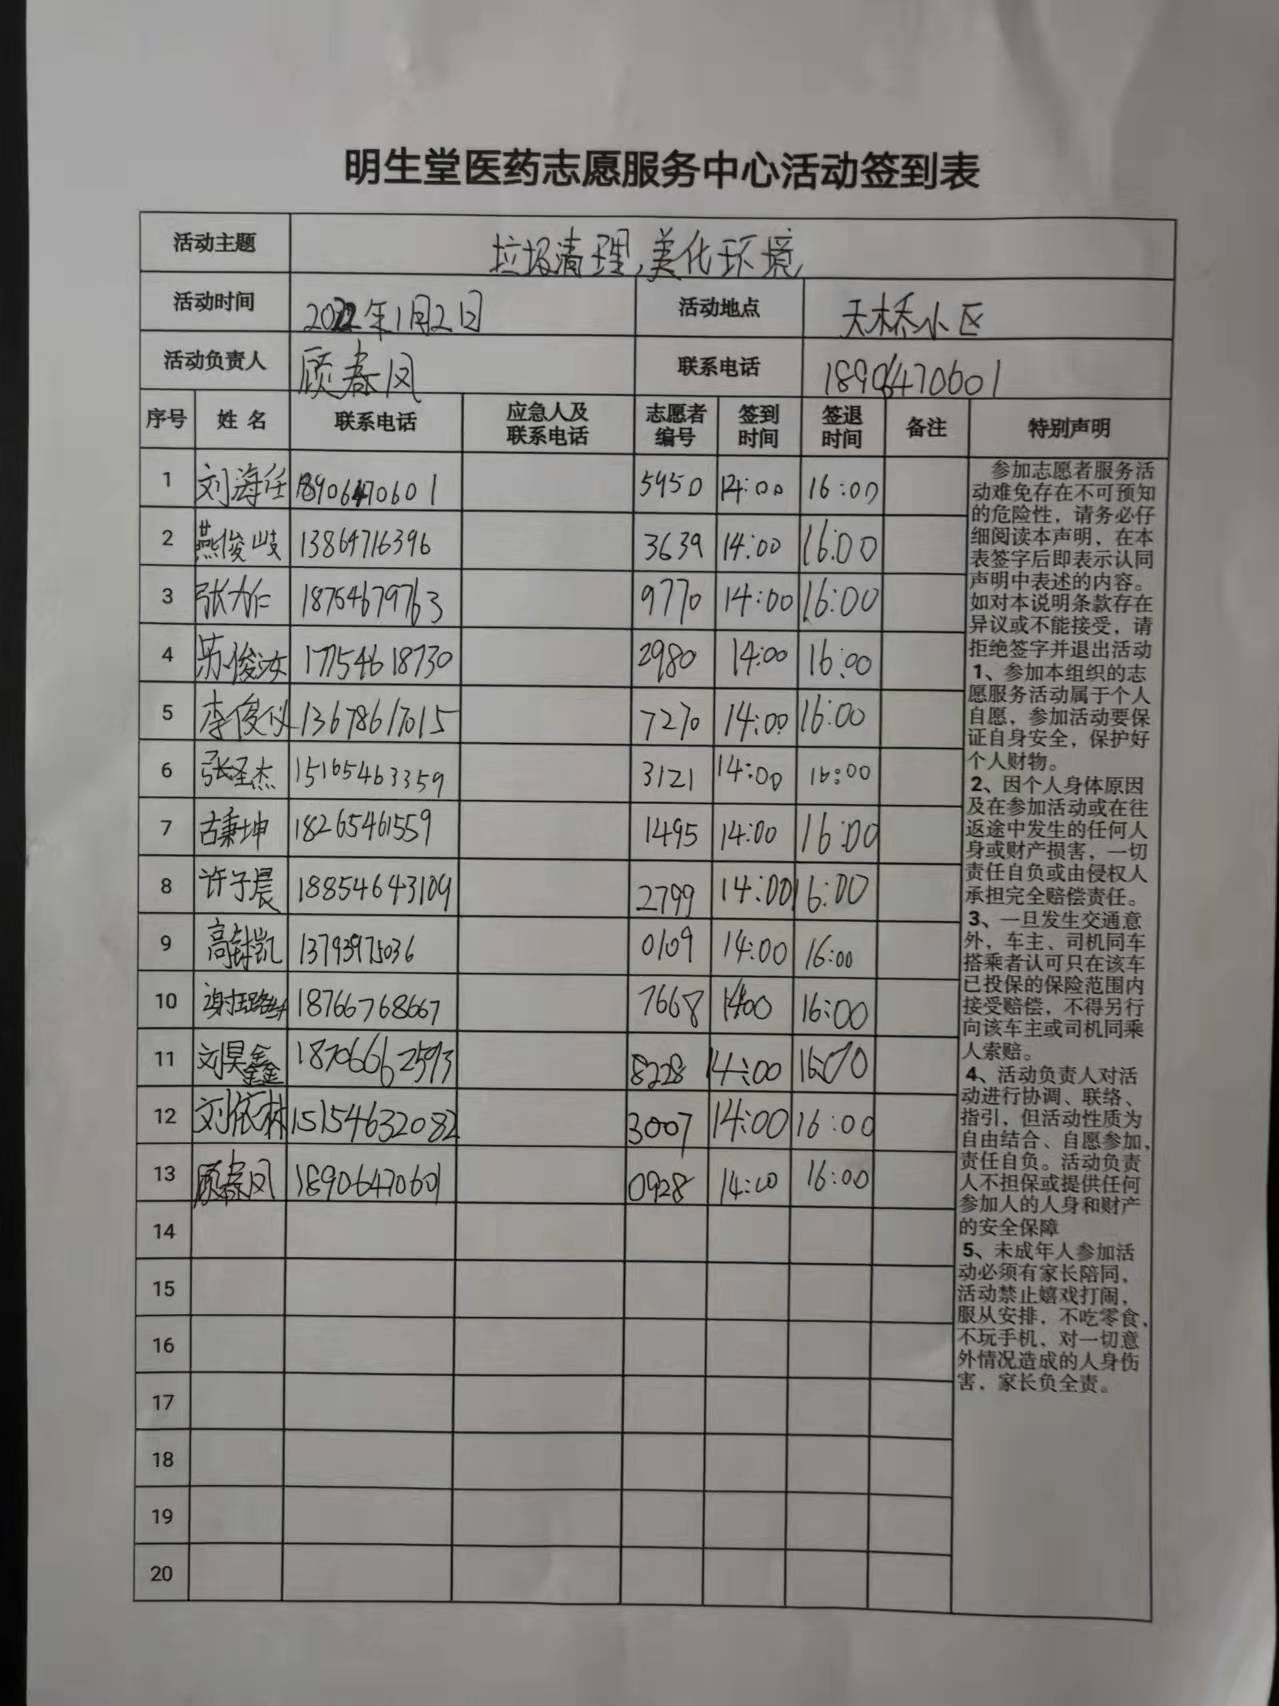 明生堂医药志愿服务中心活动签到表
活动主题 垃圾清理,美化环境
活动时间 2022年1月2日 活动地点 天桥小区
活动负责人 顾春风 联系电话 18906470601
序号 姓名 联系电话 应急人及联系电话 志愿者编号 签到时间 签退时间 备注 特别声明
1 刘海任 18906470601 5950 14:00 16:00
2 燕俊岐 13864716396 3639 14:00 16:00
3 张大仁 18754679763 9770 14:00 16:00
4 苏俊 17754618730 2980 14:00 16:00
5 李俊仪 13678617015 7270 14:00 16:00
6 张圣杰 15165463359 3121 14:00 16:00
7 古秉坤 18265461559 1495 14:00 16:00
8 许子晨 18854643109 2799 14:00 16:00
9 高 凯 13793975036 0109 14:00 16:00
10 谢 18766768667 7668 1400 16:00
11 刘昊鑫 18706662593 8228 14:00 16:00
12 刘依林 15154632082 3007 14:00 16:00
13 顾春风 18906470601 0928 14:00 16:00
14
15
16
17
18
19
20
参加志愿者服务活
动难免存在不可预知
的危险性，请务必仔
细阅读本声明，在本
表签字后即表示认同
声明中表述的内容。
如对本说明条款存在
异议或不能接受，请
拒绝签字并退出活动
1、参加本组织的志
愿服务活动属于个人
自愿，参加活动要保
证自身安全，保护好
个人财物。
2、因个人身体原因
及在参加活动或在往
返途中发生的任何人
身或财产损害，一切
责任自负或由侵权人
承担完全赔偿责任。
3、一旦发生交通意
外，车主、司机同车
搭乘者认可只在该车
已投保的保险范围内
接受赔偿，不得另行
向该车主或司机同乘
人索赔。
4、活动负责人对活
动进行协调、联络、
指引，但活动性质为
自由结合、自愿参加，
责任自负。活动负责
人不担保或提供任何
参加人的人身和财产
的安全保障
5、未成年人参加活
动必须有家长陪同，
活动禁止嬉戏打闹，
服从安排，不吃零食，
不玩手机，对一切意
外情况造成的人身伤
害，家长负全责。